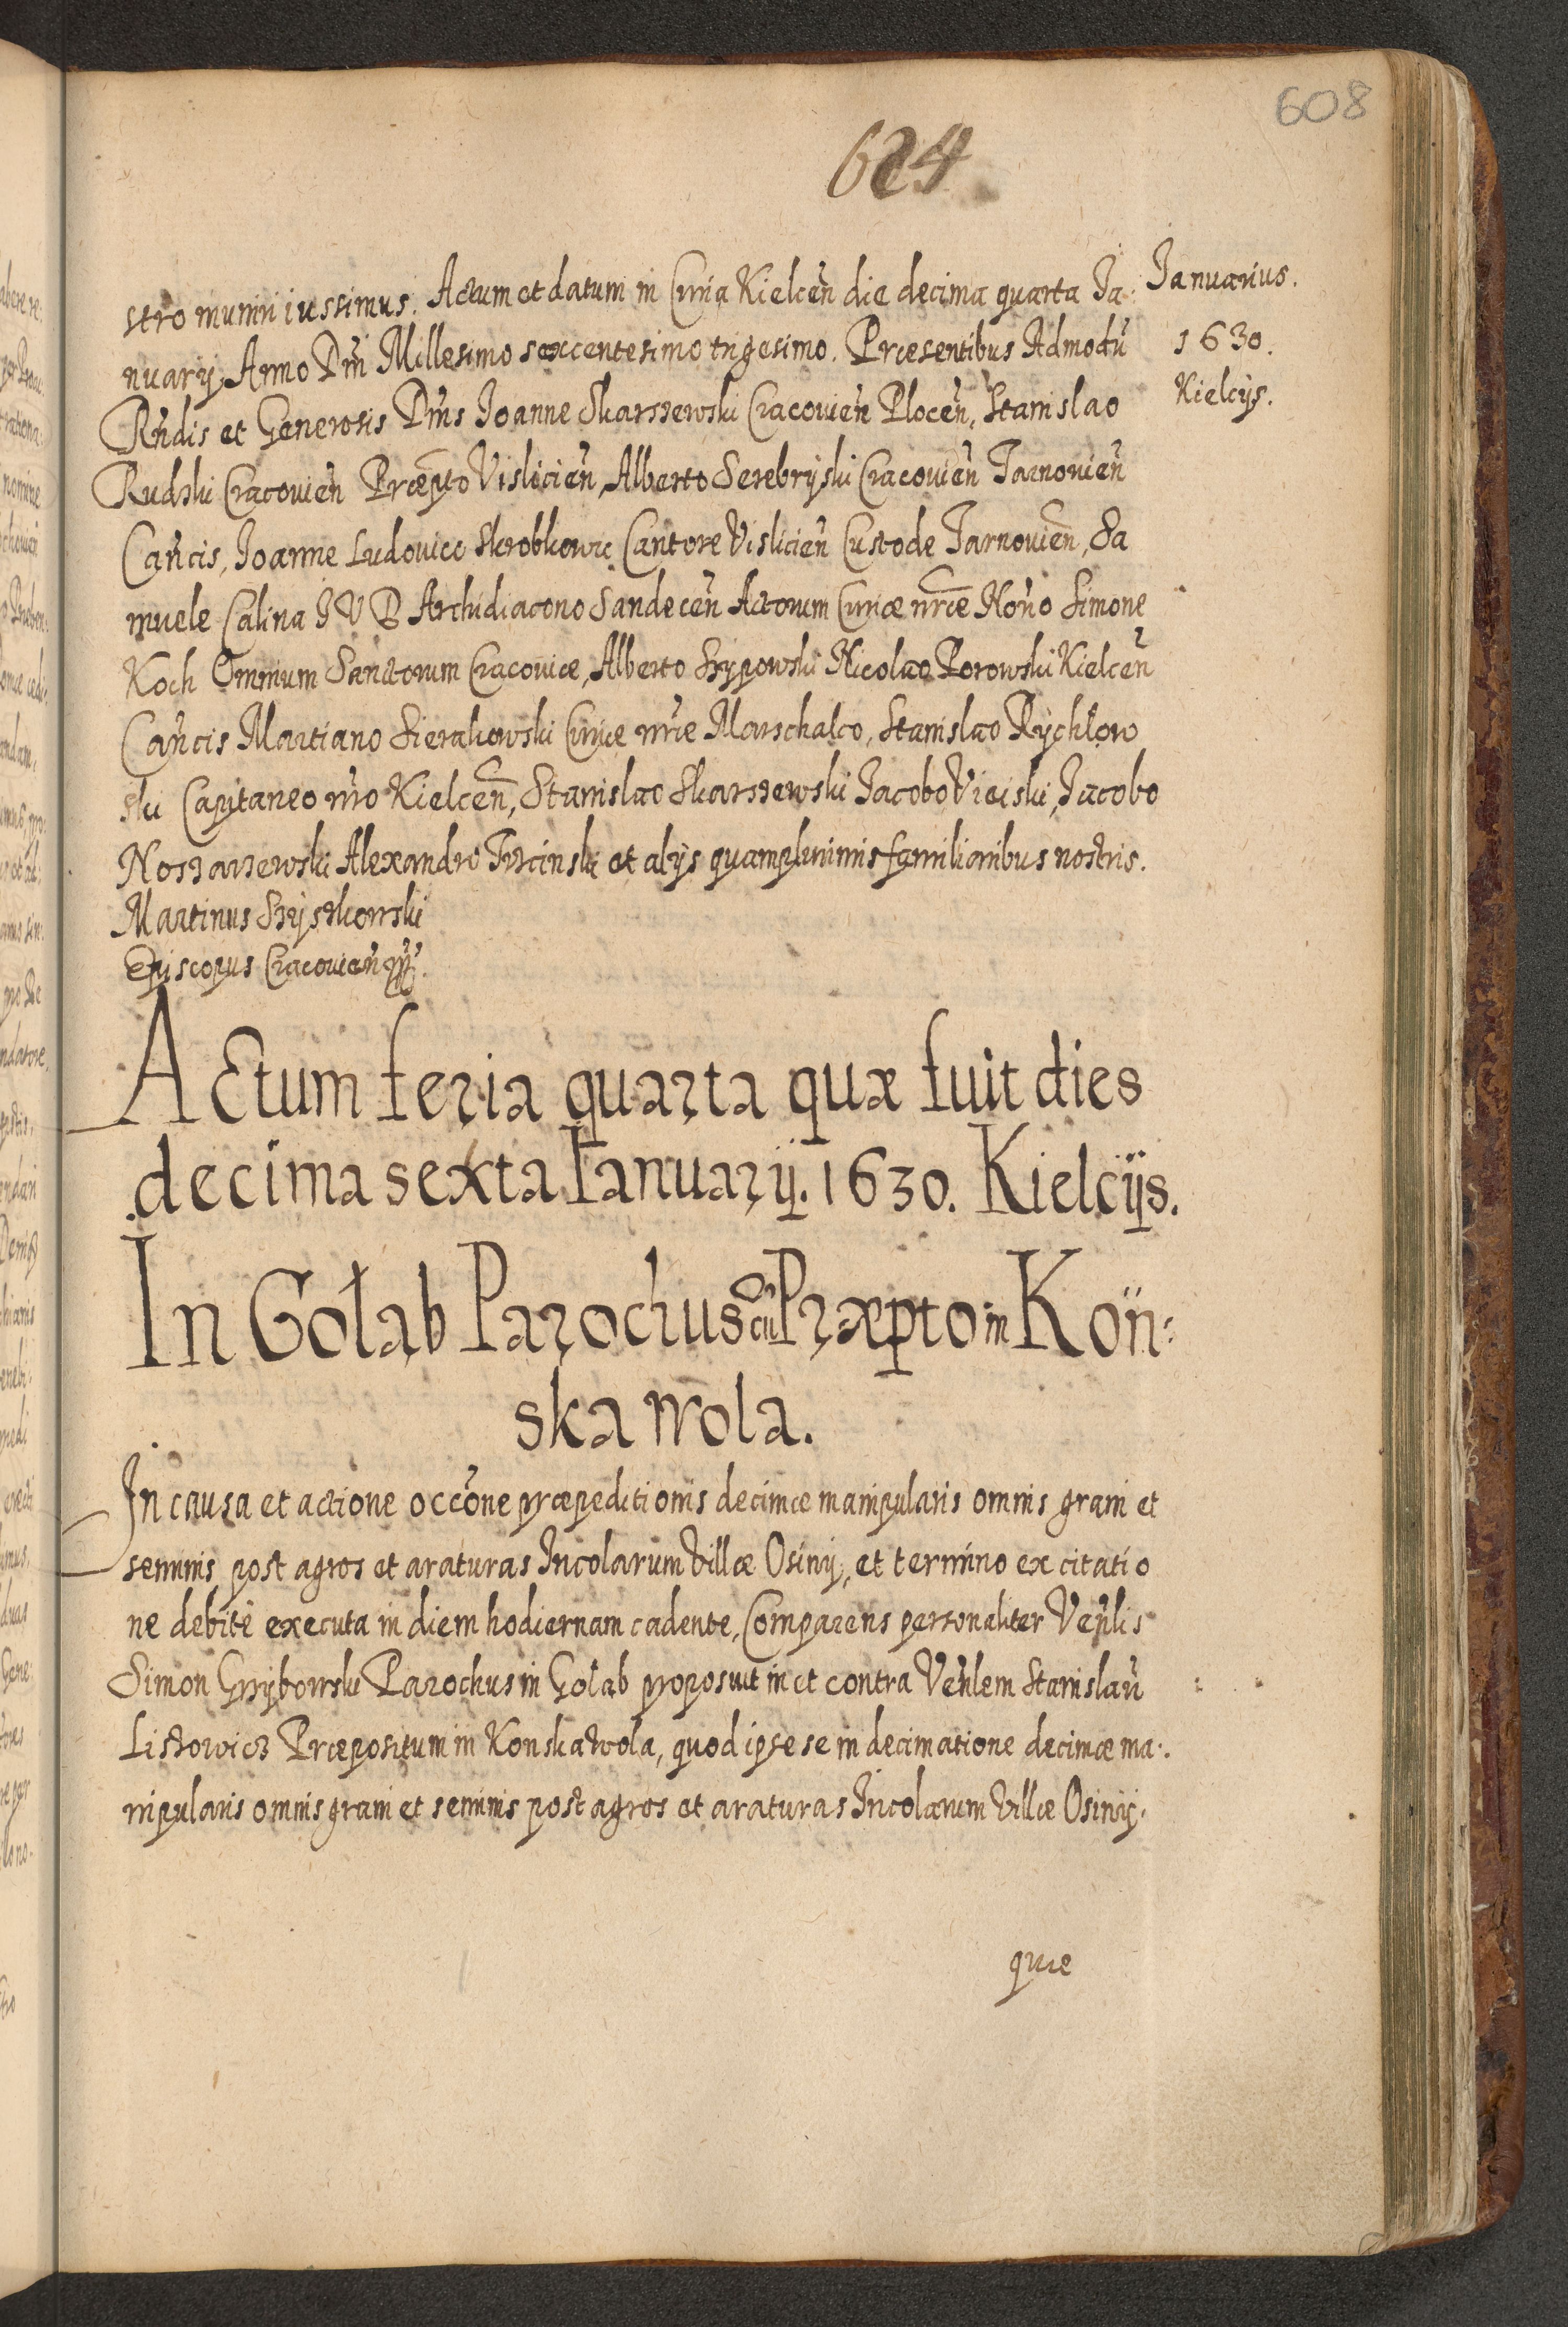 608
624
stro muniri iussimus. Actum et datum in Curia Kielceñ die decima quarta Ja-
Januarius.
nuarij Anno Dñi Millesimo sexcentesimo trigesimo. Præsentibus Admodũ
1630.
Rñdis et Generosis Dñis Joanne Skarszewski Cracovieñ Ploceñ, Stanislao
Kielcijs.
Rudzki Cracovieñ Præpto Vislicieñ, Alberto Serebryski Cracovieñ Tarnovieñ
Cañcis, Joanne Ludovico Skrobkowic Cantore Vislicieñ Custode Tarnovieñ, Sa
muele Calina I V D Archidiacono Sandeceñ Actorum Curiæ nrãe Noño Simone
Koch Omnium Sanctorum Cracoviæ, Alberto Szypowski Nicolao Porowski Kielceñ
Cañcis Martiano Sierakowski Curiæ nrãe Marschalco, Stanislao Rychłow
ski Capitaneo nr̃o Kielceñ, Stanislao Skarszewski Jacobo Vieiski, Jacobo
Noszarzewski Alexandro Trzcinski et alijs quamplurimis familiaribus nostris.
Martinus Szyszkowski
Episcopus Cracovieñ
Actum feria quarta quæ fuit dies
decima sexta Ianuarij. 1630. Kielcijs.
In Gołąb Parochus cũ Præpto in Kon:
ska wola.
In causa et actione occõne præpeditionis decimæ manipularis omnis grani et
seminis post agros et araturas Incolarum villæ Osiny, et termino ex citatio
ne debitè executa in diem hodiernam cadente, Comparens personaliter Veñlis
Simon Grzybowski Parochus in Gołąb proposuit in et contra Veñlem Stanislaũ
Listowicz Præpositum in Konskawola, quod ipse se in decimatione decimæ ma-
nipularis omnis grani et seminis post agros et araturas Incolarum villæ Osiny.
quæ